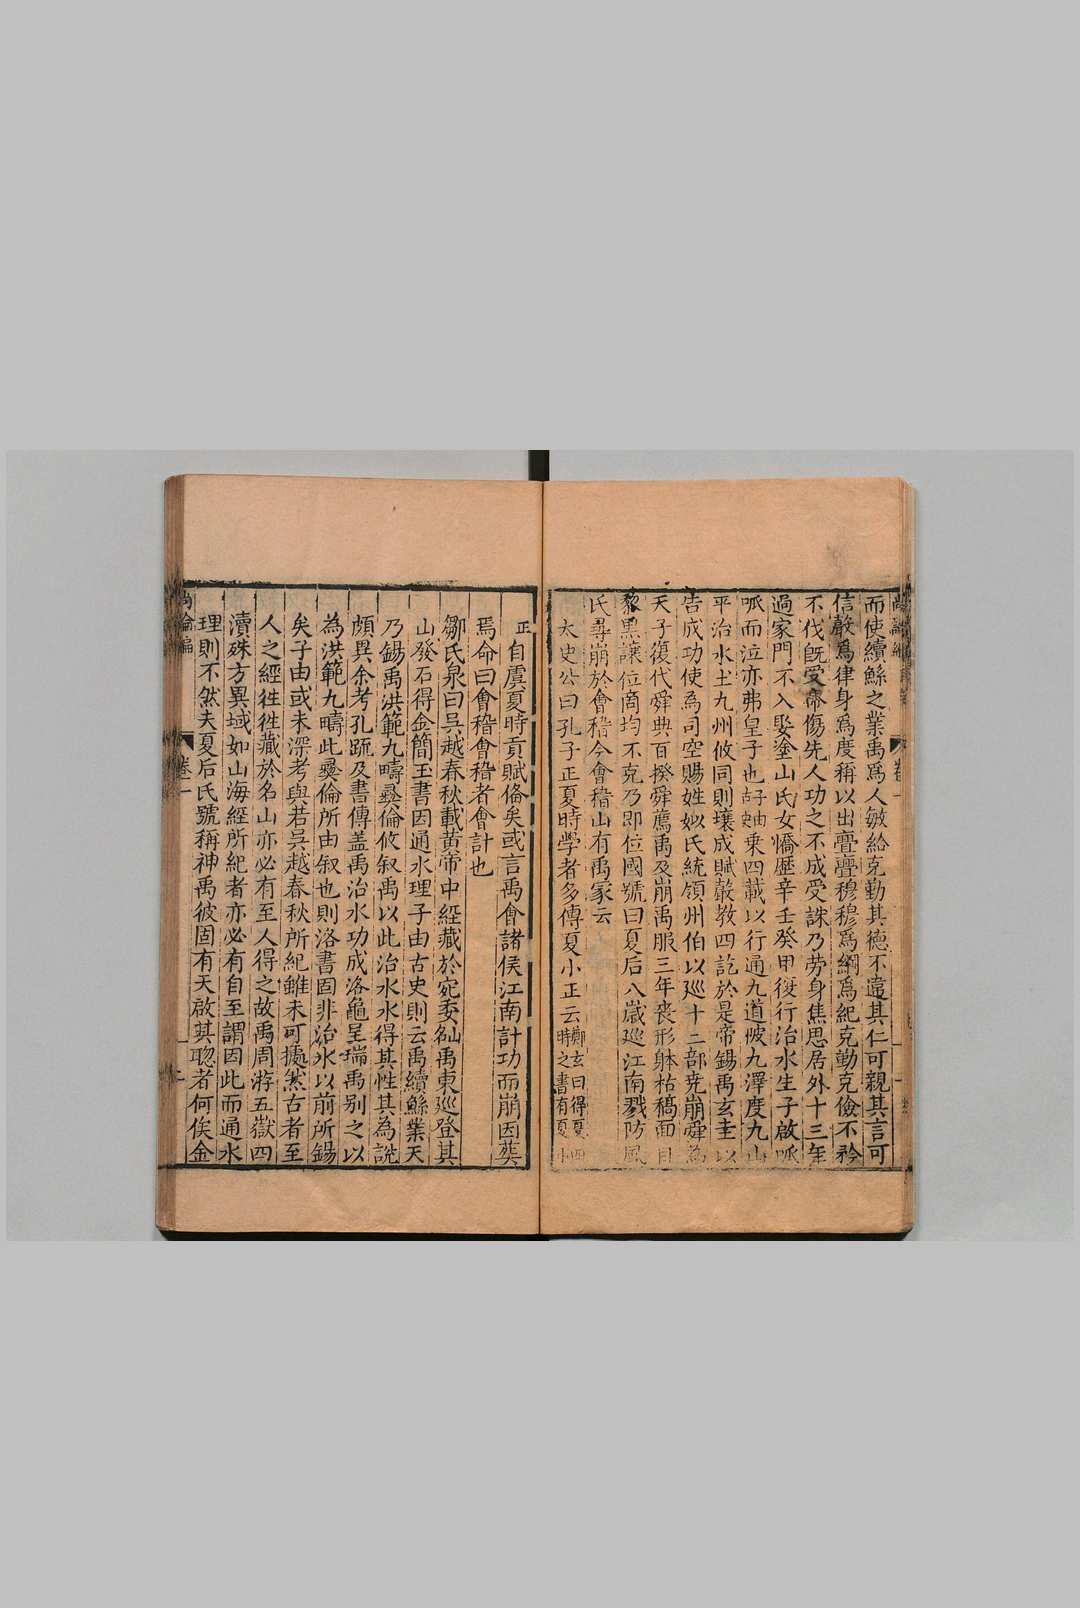 而使續鯀之業禹爲人敏給克勤其德不違其仁可親其言可
信聲爲律身爲度稱以出亹亹穆穆爲綱爲紀克勤克儉不矜
不伐旣受命傷先人功之不成受誅乃劳身焦思居外十三年
過家門不入娶塗山氏女憍歷辛壬癸甲復行治水生子啟呱
呱而泣亦弗皇子也 乗四載以行通九道陂九澤度九山
平治水土九州攸同則壤成賦聲敎四訖於是帝錫禹玄圭以
告成功使為司空賜姓姒氏統領州伯以廵十二部尭崩舜為
天子復代舜典百揆舜薦禹及崩禹服三年喪形躰枯槁面目
黎黑讓位啇均不克乃即位國號曰夏后八嵗廵江南戮防風
氏尋崩於會稽今會稽山有禹冢云
太史公曰孔子正夏時學者多傳夏小正云鄭玄曰得夏四時之書有夏小
正自虞夏時貢賦俻矣或言禹會諸侯江南計功而崩因葬
焉命曰會稽會稽者會計也
鄒氏泉曰吳越春秋載黄帝中經藏於宛委仙禹東廵登其
山發石得金簡玉書因通水理子由古史則云禹續鯀業天
乃錫禹洪範九疇彞倫攸叙禹以此治水水得其性其為說
頗異余考孔䟽及書傳盖禹治水功成洛龜呈瑞禹别之以
為洪範九疇此彞倫所由叙也則洛書固非治水以前所錫
矣子由或未深考與若吳越春秋所紀雖未可據然古者至
人之經徃徃藏於名山亦必有至人得之故禹周游五嶽四
瀆殊方異域如山海經所紀者亦必有自至謂因此而通水
理則不然夫夏后氏號稱神禹彼固有天啟其聦者何俟金
尚論編
卷一